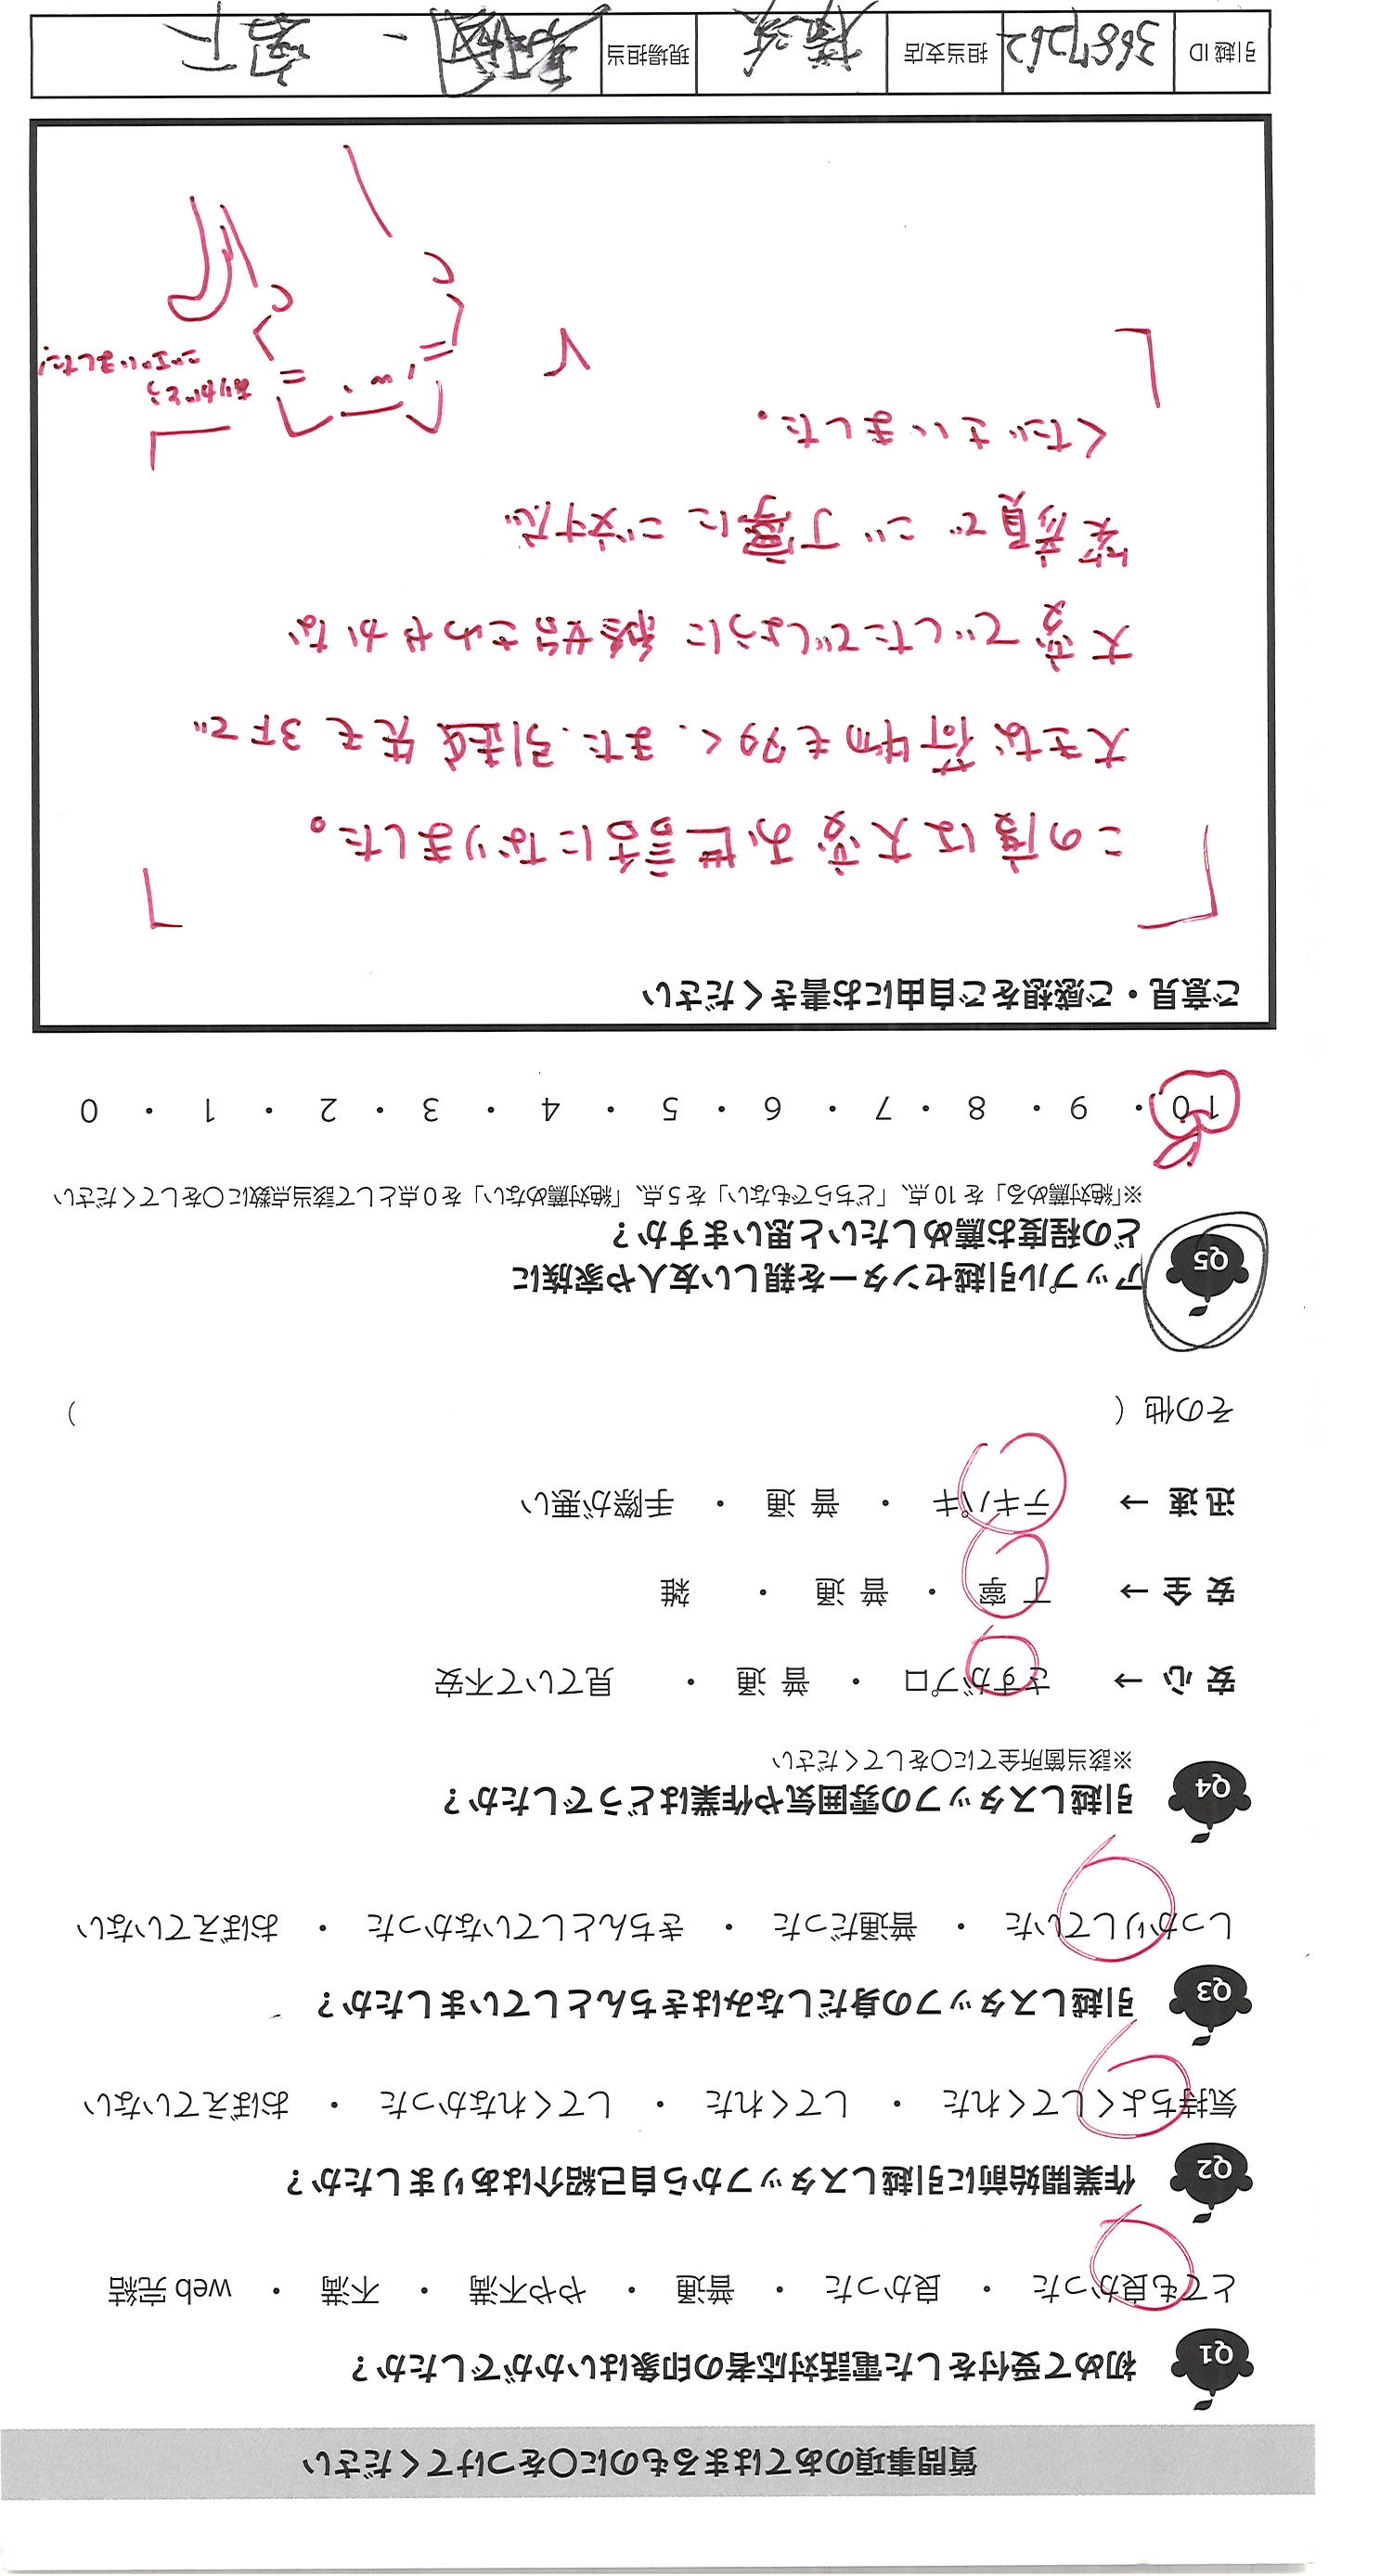 質問事項のあてはまるものに○をつけてください
Q1 初めて受付をした電話対応者の印象はいかがでしたか？
とても良かった ・ 良かった ・ 普通 ・ やや不満 ・ 不満 ・ web 完結
Q2 作業開始前に引越しスタッフから自己紹介はありましたか？
気持ちよくしてくれた ・ してくれた ・ してくれなかった ・ おぼえていない
Q3 引越しスタッフの身だしなみはきちんとしていましたか？
しっかりしていた ・ 普通だった ・ きちんとしていなかった ・ おぼえていない
Q4 引越しスタッフの雰囲気や作業はどうでしたか？
※該当箇所全てに○をしてください
安 心 → さすがプロ ・ 普 通 ・ 見ていて不安
安 全 → 丁 寧 ・ 普 通 ・ 雑
迅 速 → テキパキ ・ 普 通 ・ 手際が悪い
その他（ ）
Q5 アップル引越センターを親しい友人や家族に
どの程度お薦めしたいと思いますか？
※「絶対薦める」を 10 点、「どちらでもない」を 5 点、「絶対薦めない」を 0 点として該当点数に○をしてください
10 ・ 9 ・ 8 ・ 7 ・ 6 ・ 5 ・ 4 ・ 3 ・ 2 ・ 1 ・ 0
ご意見・ご感想をご自由にお書きください
この度は大変お世話になりました。
大きな荷物も多く、また、引越先も3Fで
大変でしたでしょうに終始さわやかな
笑顔でご丁寧にご対応
くださいました。
ありがとう
ございました!
引越 ID 3687262 担当支店 横浜 現場担当 宮下